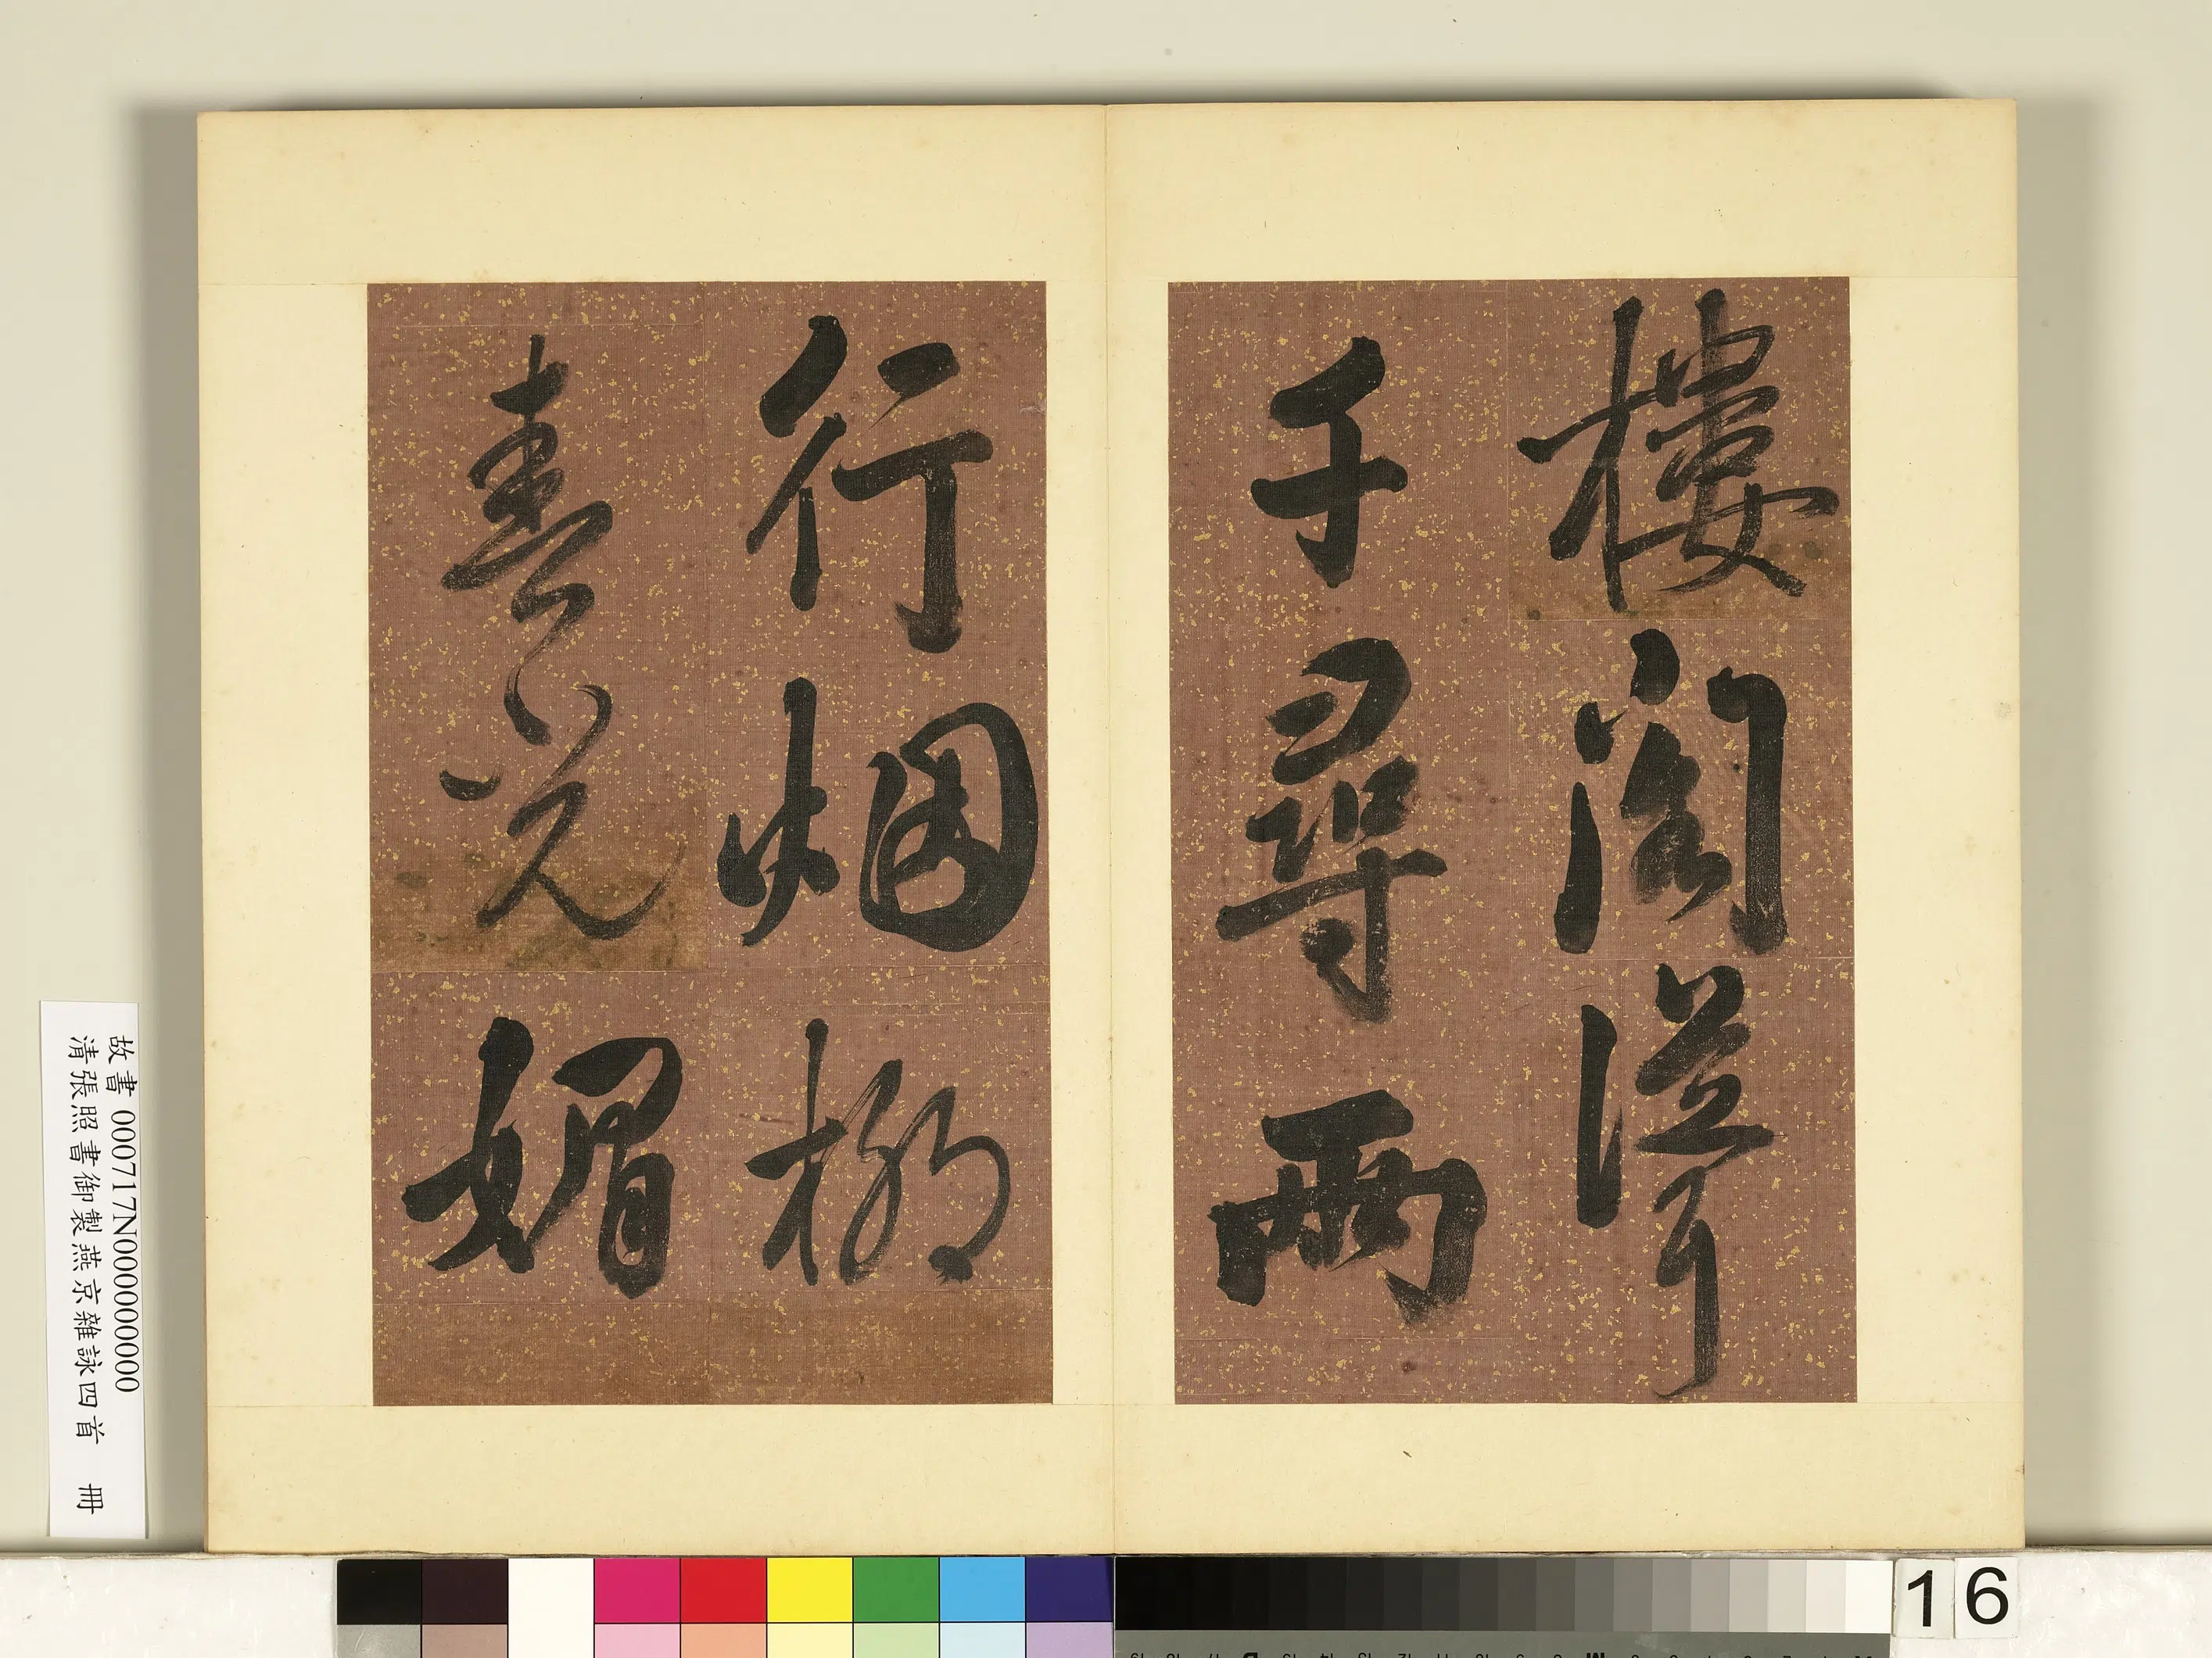 樓閣聳
千尋兩
行烟柳
春光媚
故書 000717N000000000
清張照書御製燕京雜詠四首 冊
16